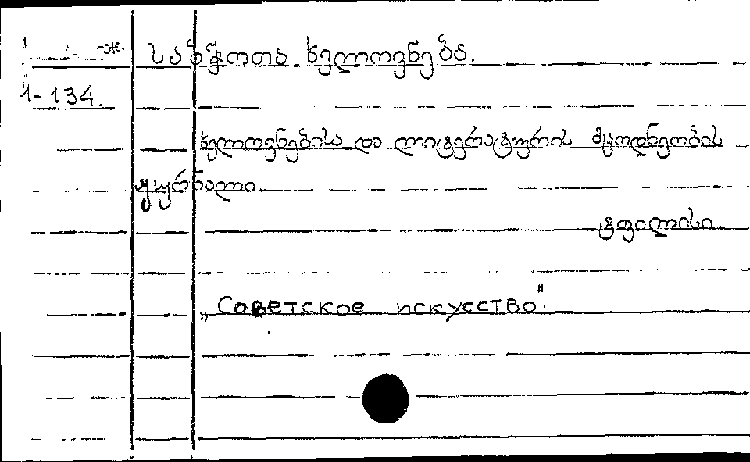 საბჭოთა ხელოვნება.
1-134.
ხელოვნებისა და ლიტერატურის მცოდნეობის
ჟურნალი
ტფილისი
„Советское искусство".